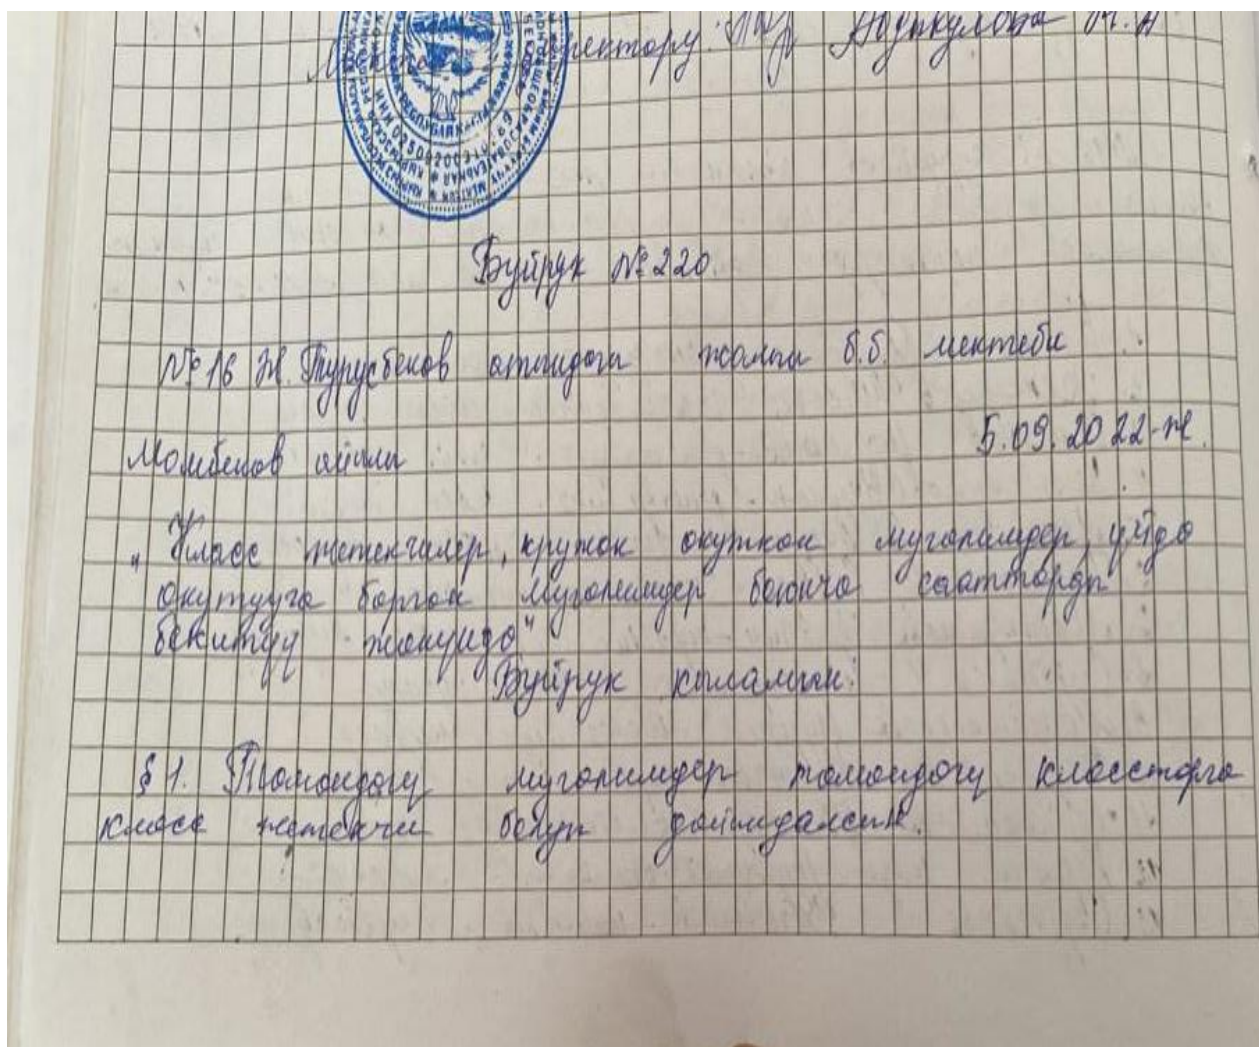 директору: Абдыкулова
Буйрук № 220.
№ 16 Ж. Турусбеков атындагы жалпы б.б. мектеби
Момбеков айылы 5.09.2022-ж.
„Класс жетекчилер, кружок окуткан мугалимдер, үйдө
окутууга барган мугалимдер боюнча сааттарды
бекитүү жөнүндө"
Буйрук кыламын:
§ 1. Томондогу мугалимдер томондогу класстарга
класс жетекчи болуп дайындалсын.